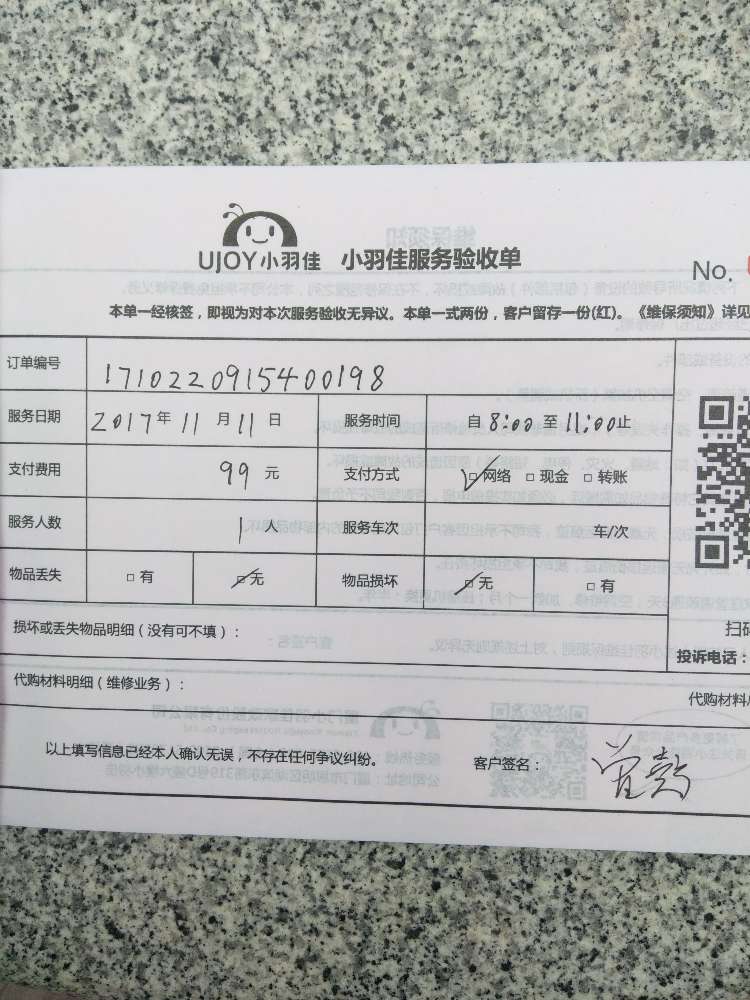 UJOY小羽佳 小羽佳服务验收单
No.
本单一经核签，即视为对本次服务验收无异议。本单一式两份，客户留存一份(红)。《维保须知》详见
订单编号 1710220915400198
服务日期 2017年 11 月 11 日 服务时间 自 8:00 至 11:00止
支付费用 99 元 支付方式 ☑网络 □ 现金 □ 转账
服务人数 1 人 服务车次 车/次
物品丢失 □ 有 ☑无 物品损坏 ☑无 □ 有
损坏或丢失物品明细（没有可不填）：
扫码
投诉电话：
代购材料明细（维修业务）：
代购材料
以上填写信息已经本人确认无误，不存在任何争议纠纷。 客户签名：